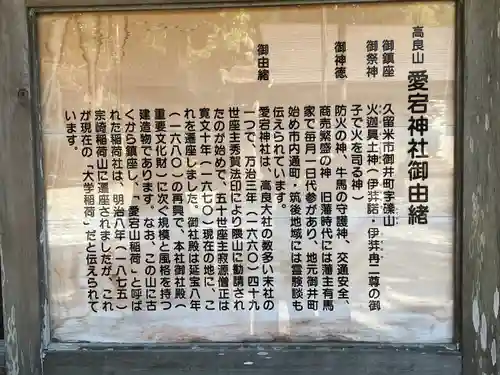 高良山 愛宕神社御由緒
御鎮座 久留米市御井町字礫山
御祭神 火迦具土神(伊弉諾・伊弉冉二尊の御
子で火を司る神)
御神徳 防火の神、牛馬の守護神、交通安全、
商売繁盛の神 旧藩時代には藩主有馬
家で毎月一日代参があり、地元御井町
始め市内通町・筑後地域には霊験談も
伝えられています。
御由緒 愛宕神社は、高良大社の数多い末社の
一つで、万治三年(一六六〇)四十九
世座主秀賀法印により隈山に勧請され
たのが始めで、五十世座主寂源僧正は
寛文十年(一六七〇)現在の地に、こ
れを遷しました。御社殿は延宝八年
(一六八〇)の再興で、本社御社殿(
重要文化財)に次ぐ規模と風格を持つ
建造物であります。なお、この山に古
くから鎮座し、「愛宕山稲荷」と呼ば
れた稲荷社は、明治八年(一八七五)
宗崎稲荷山に遷座されましたが、これ
が現在の「大学稲荷」だと伝えられて
います。